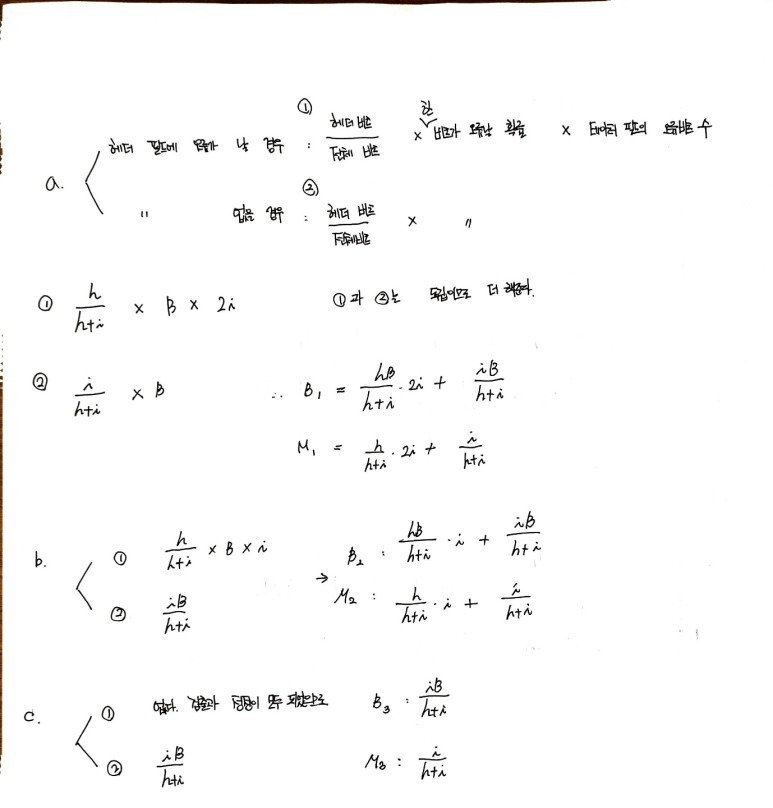 a. 헤더 필드에 오류가 날 경우 : ① 헤더 비트 / 전체 비트 × 한 비트가 오류날 확률 × 데이터 필드의 오류비트 수
〃 없을 경우 : ② 헤더 비트 / 전체비트 × 〃
① h/(h+i) × B × 2i ①과 ②는 독립이므로 더해준다.
② i/(h+i) × B ∴ B₁ = hB/(h+i) · 2i + iB/(h+i)
M₁ = h/(h+i) · 2i + i/(h+i)
b. ① h/(h+i) × B × i → B₂ : hB/(h+i) · i + iB/(h+i)
② iB/(h+i) M₂ : h/(h+i) · i + i/(h+i)
c. ① 없다. 검출과 정정이 모두 되었으므로 B₃ : iB/(h+i)
② iB/(h+i) M₃ : i/(h+i)